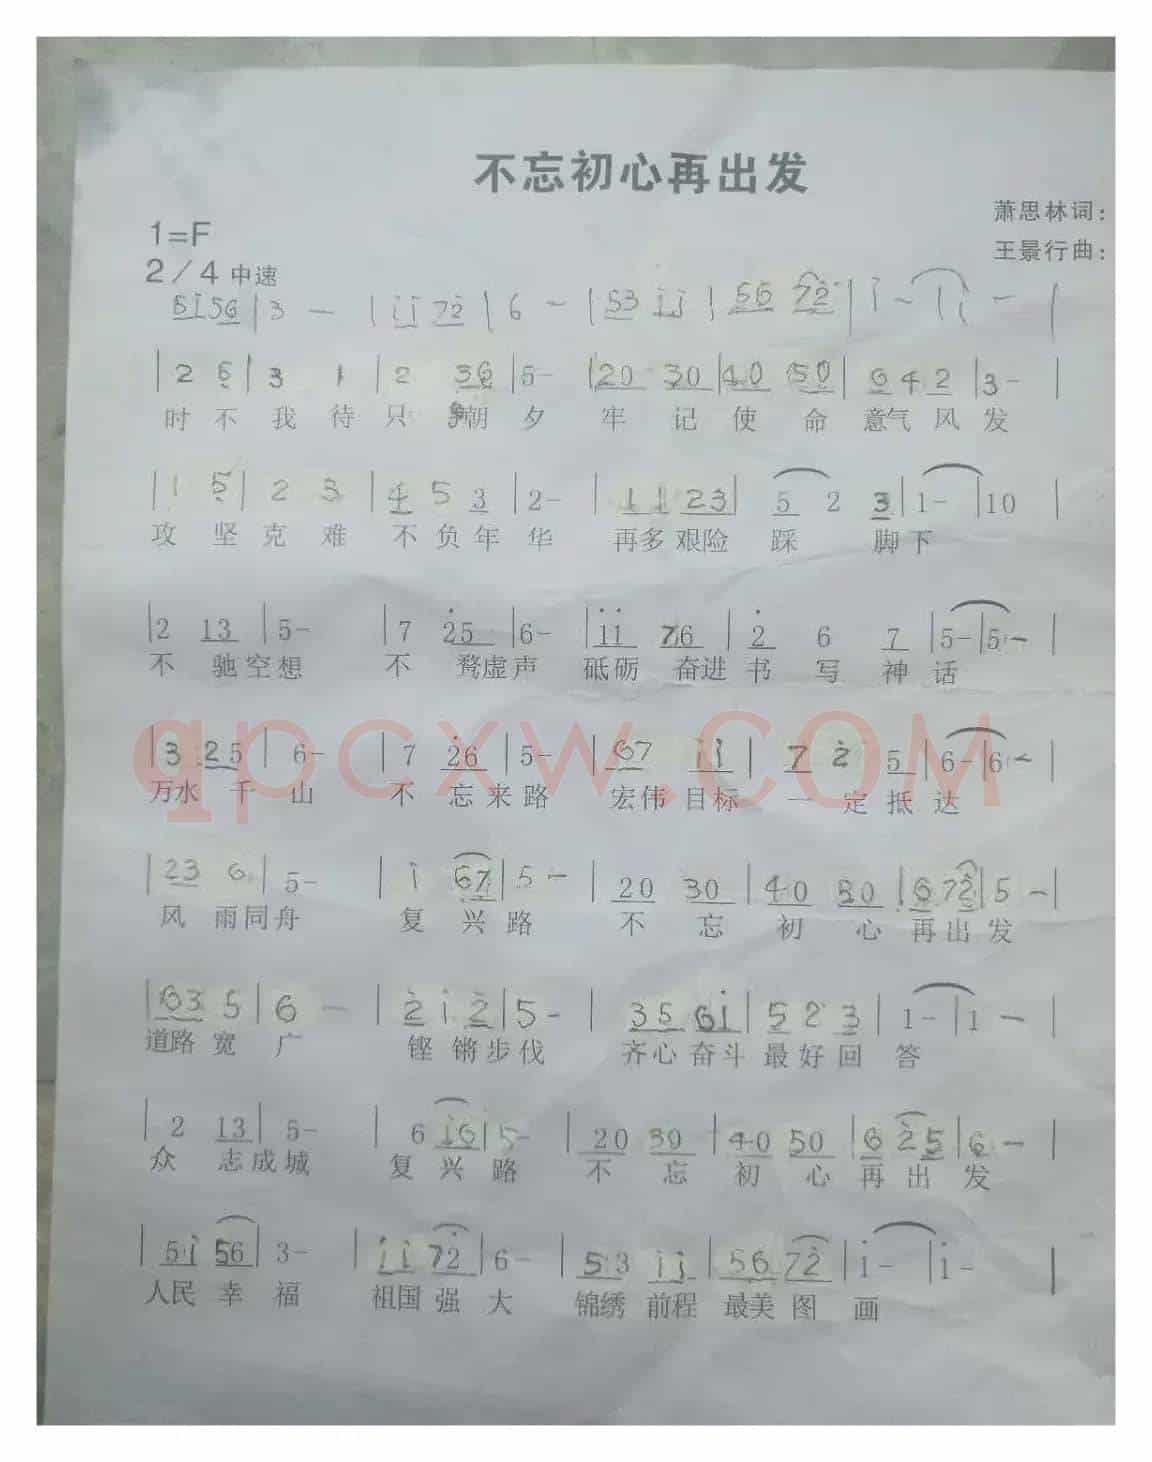 不忘初心再出发
萧思林词：
1=F
王景行曲：
2/4 中速
5i56 | 3 — | ii 72 | 6 — | 53 ii | 56 72 | i — | i —  |
| 2 5 | 3 1 | 2 36 | 5- | 20 30 | 40 50 | 6 4 2 | 3- |
时 不 我 待 只 朝 夕 牢 记 使 命 意气 风 发
| 1 5 | 2 3 | 4 5 3 | 2- | 11 23 | 5 2 3 | 1- | 10 |
攻 坚 克 难 不 负 年 华 再多 艰险 踩 脚 下
| 2 13 | 5- | 7 25 | 6- | ii 76 | 2 6 7 | 5- | 5- |
不 驰 空 想 不 骛虚 声 砥砺 奋进 书 写 神 话
| 3 25 | 6- | 7 26 | 5- | 67 ii | 7 2 5 | 6- | 6- |
万水 千 山 不 忘 来 路 宏伟 目标 一 定 抵 达
| 23 6 | 5- | i 67 | 5- | 20 30 | 40 50 | 672 | 5- |
风 雨同 舟 复 兴 路 不 忘 初 心 再 出 发
| 63 5 | 6 - | 2 i 2 | 5- | 35 6i | 5 2 3 | 1- | 1- |
道路 宽 广 铿 锵 步 伐 齐心 奋斗 最 好 回 答
| 2 13 | 5- | 6 i6 | 5- | 20 30 | 40 50 | 6 25 | 6- |
众 志成 城 复 兴 路 不 忘 初 心 再 出 发
| 5i 56 | 3- | ii 72 | 6- | 53 ii | 56 72 | i- | i- |
人民 幸 福 祖国 强 大 锦绣 前程 最美 图 画
qpcxw.COM